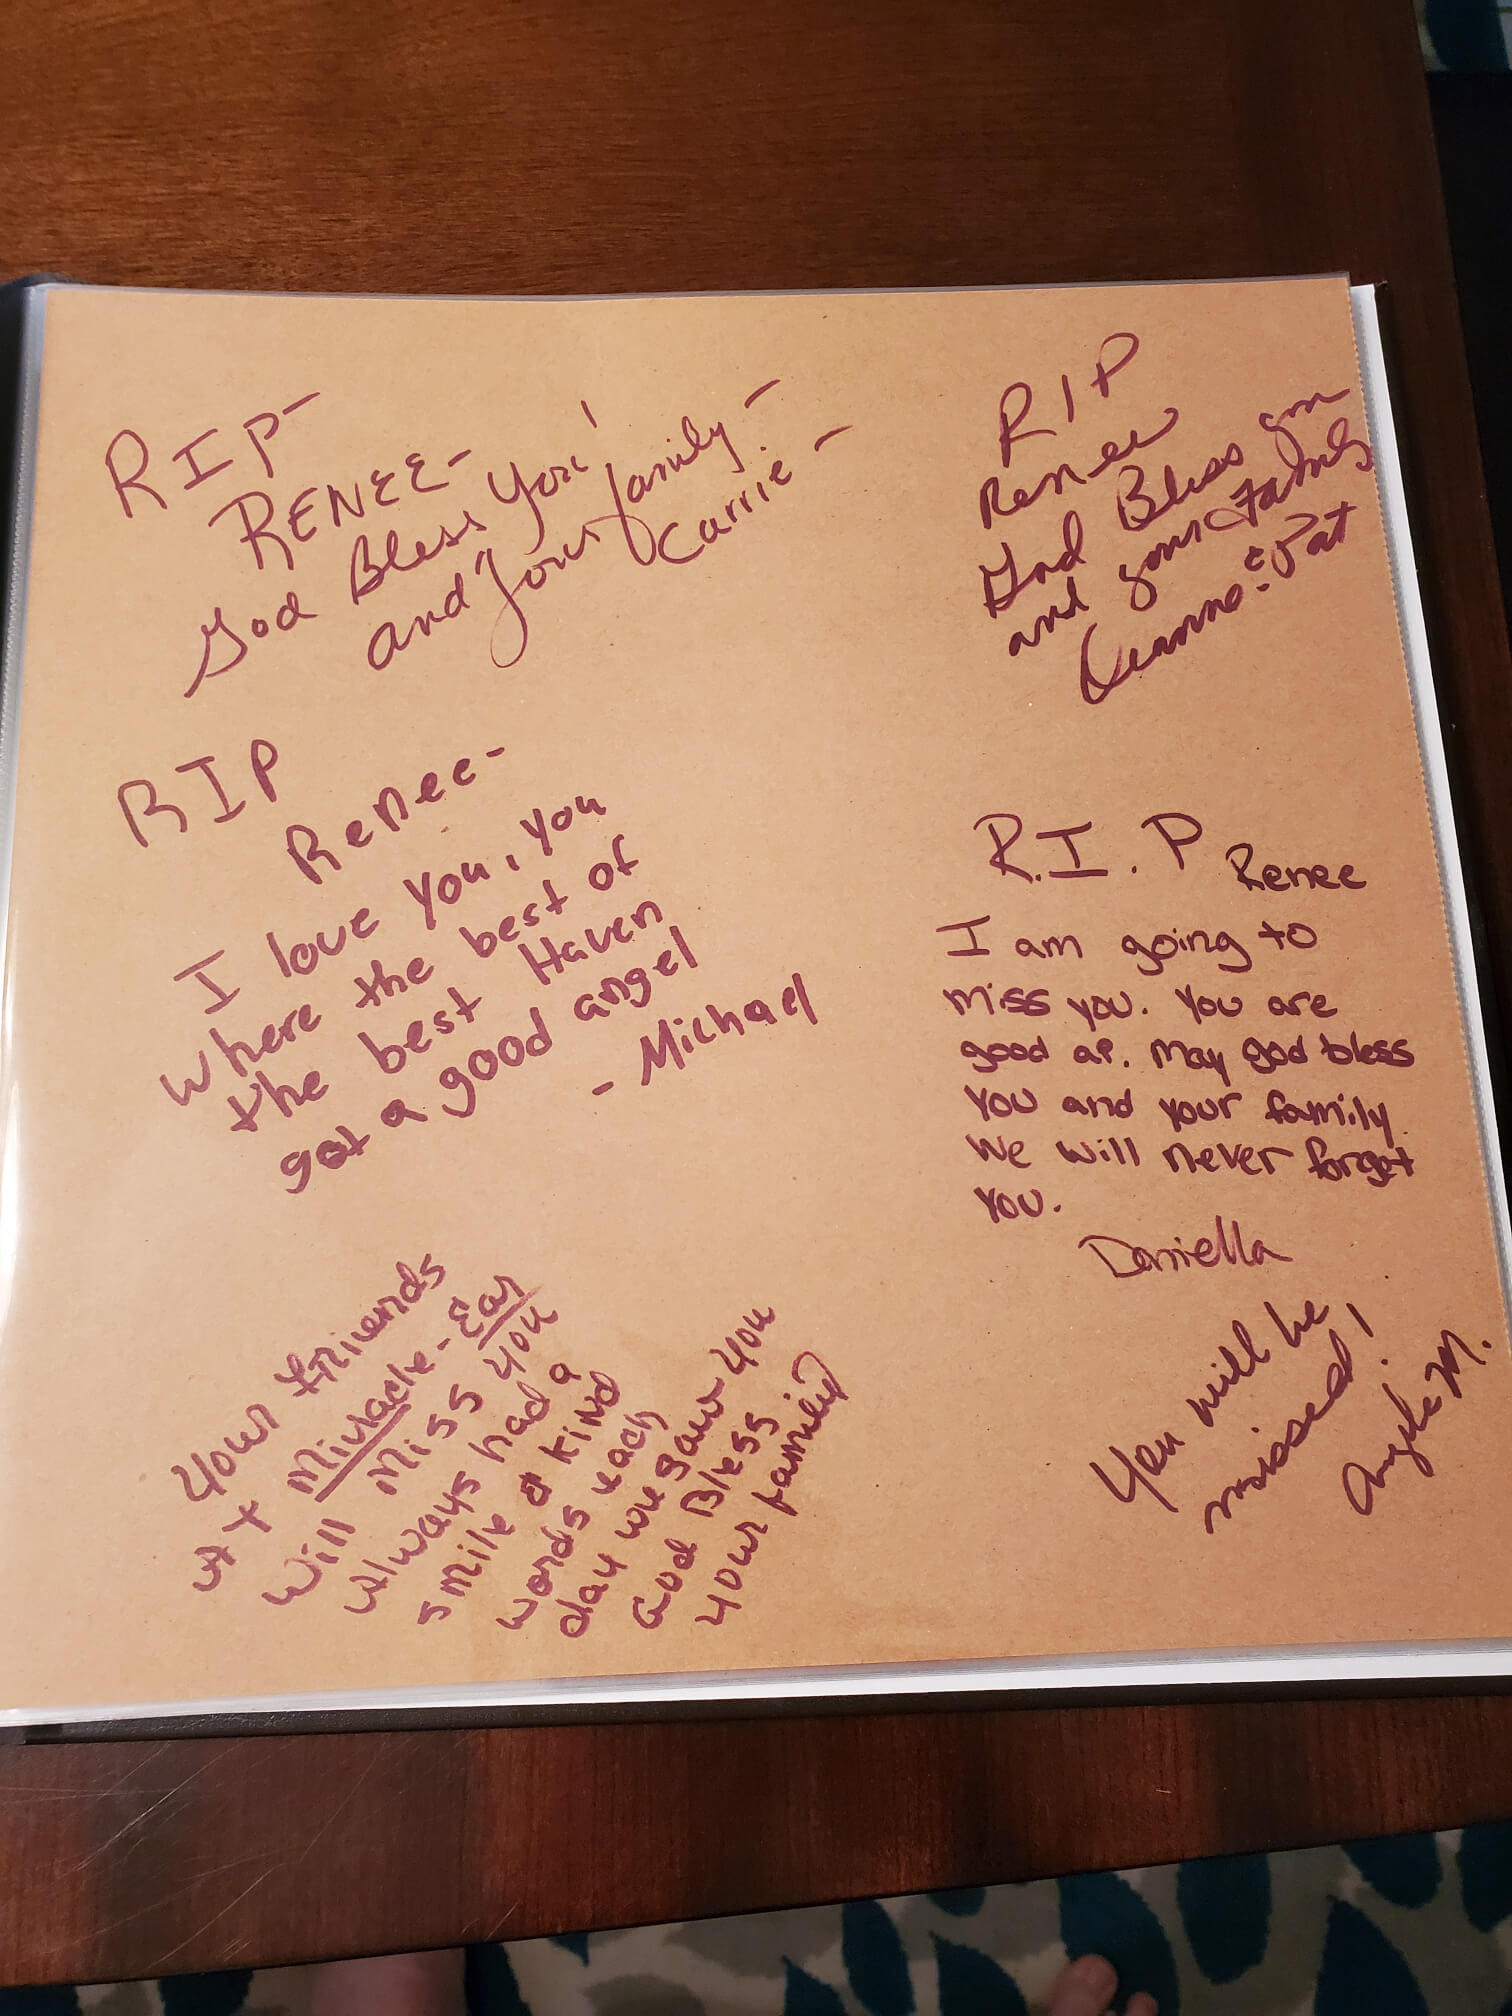 RIP-
RENEE-
God Bless you!
and your family-
Carrie-
RIP
Renee
God Bless you
and your Family
& Pat
RIP
Renee-
I love you, you
where the best of
the best Haven
got a good angel
- Michael
R.I.P Renee
I am going to
miss you. You are
good ap. May god bless
you and your family
We will never forget
you.
Daniella
your friends
at Miracle-Ear
will miss you
always had a
smile & kind
words each
day we saw you
God Bless
your family
You will be
missed!
Angela M.